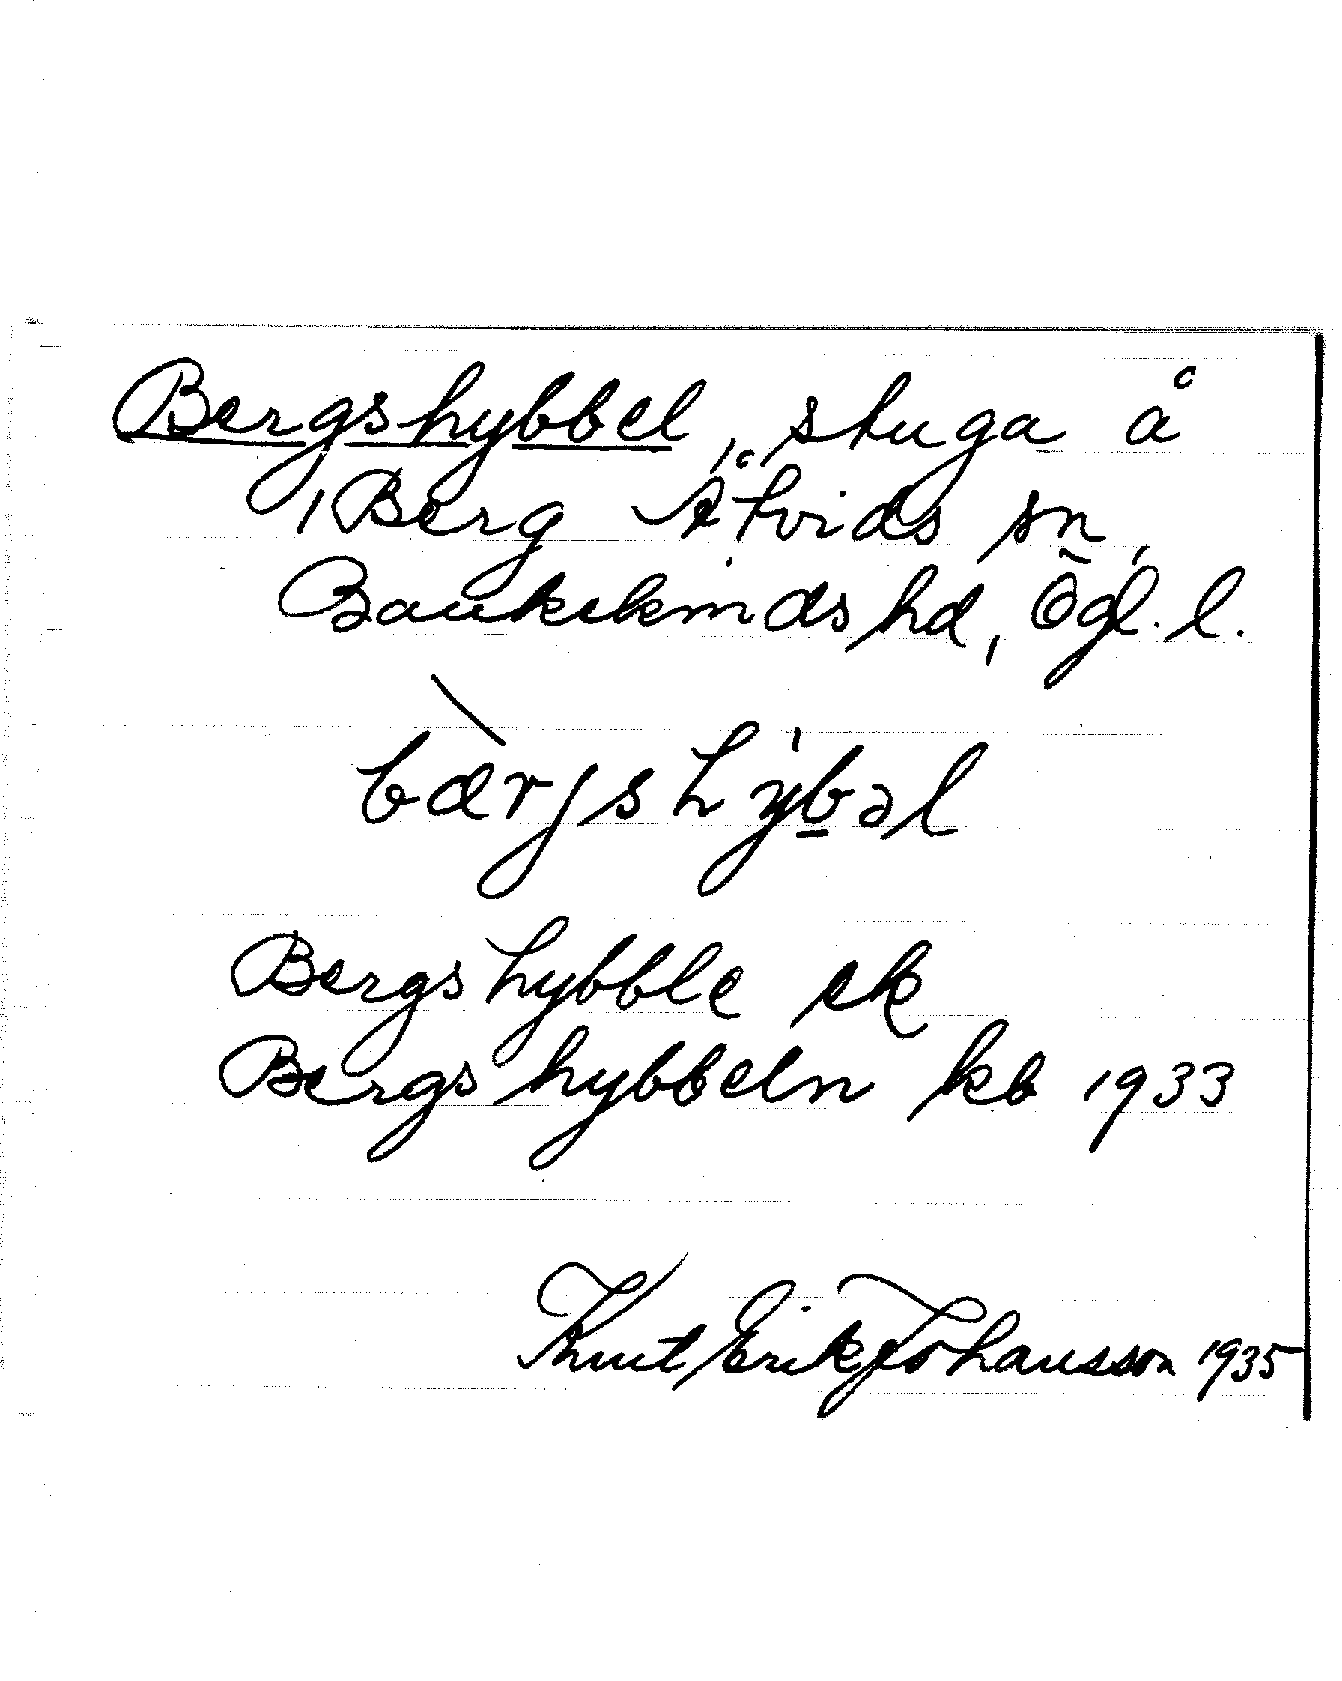 Bergshybbel, stuga å
1 Berg Åtvids sn,
Bankekinds hd, Ögl. l.
bærjshýbəl
Bergshybble ek
Bergshybbeln kb 1933
Knut Erik Johansson 1935